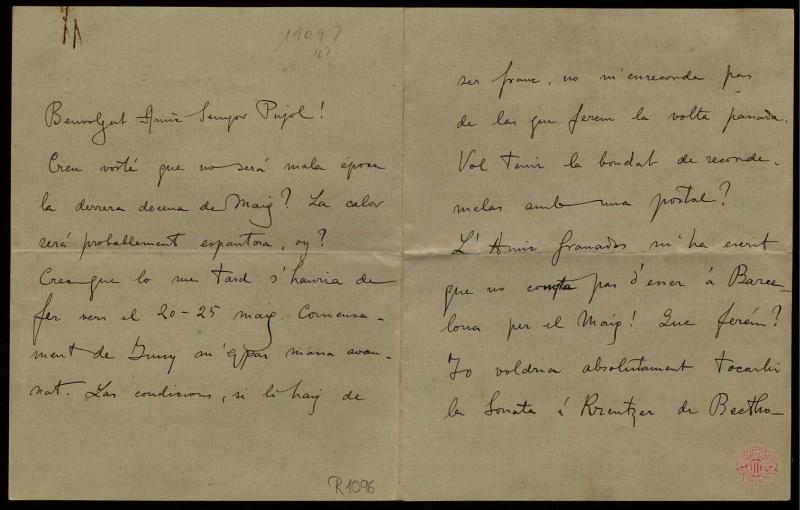 1909?
Benvolgut Amic Senyor Pujol!
Creu vosté que no será mala época
la derrera decena de Maig? La calor
será probablement espantosa, oy?
Crec que lo mes tard s'hauria de
fer vers el 20-25 maig. Comensa-
ment de Juny m'es par massa avan-
sat. Las condicions, si li haig de
ser franc, no m'enrecorda pas
de las que ferem la volta passada.
Vol tenir la bondat de recorde-
melas amb una postal?
L'Amic Granados m'ha escrit
que no compta pas d'esser á Barce-
lona per el Maig! Que ferém?
Jo voldria absolutament tocarhi
la Sonata á Kreutzer de Beetho-
R1096